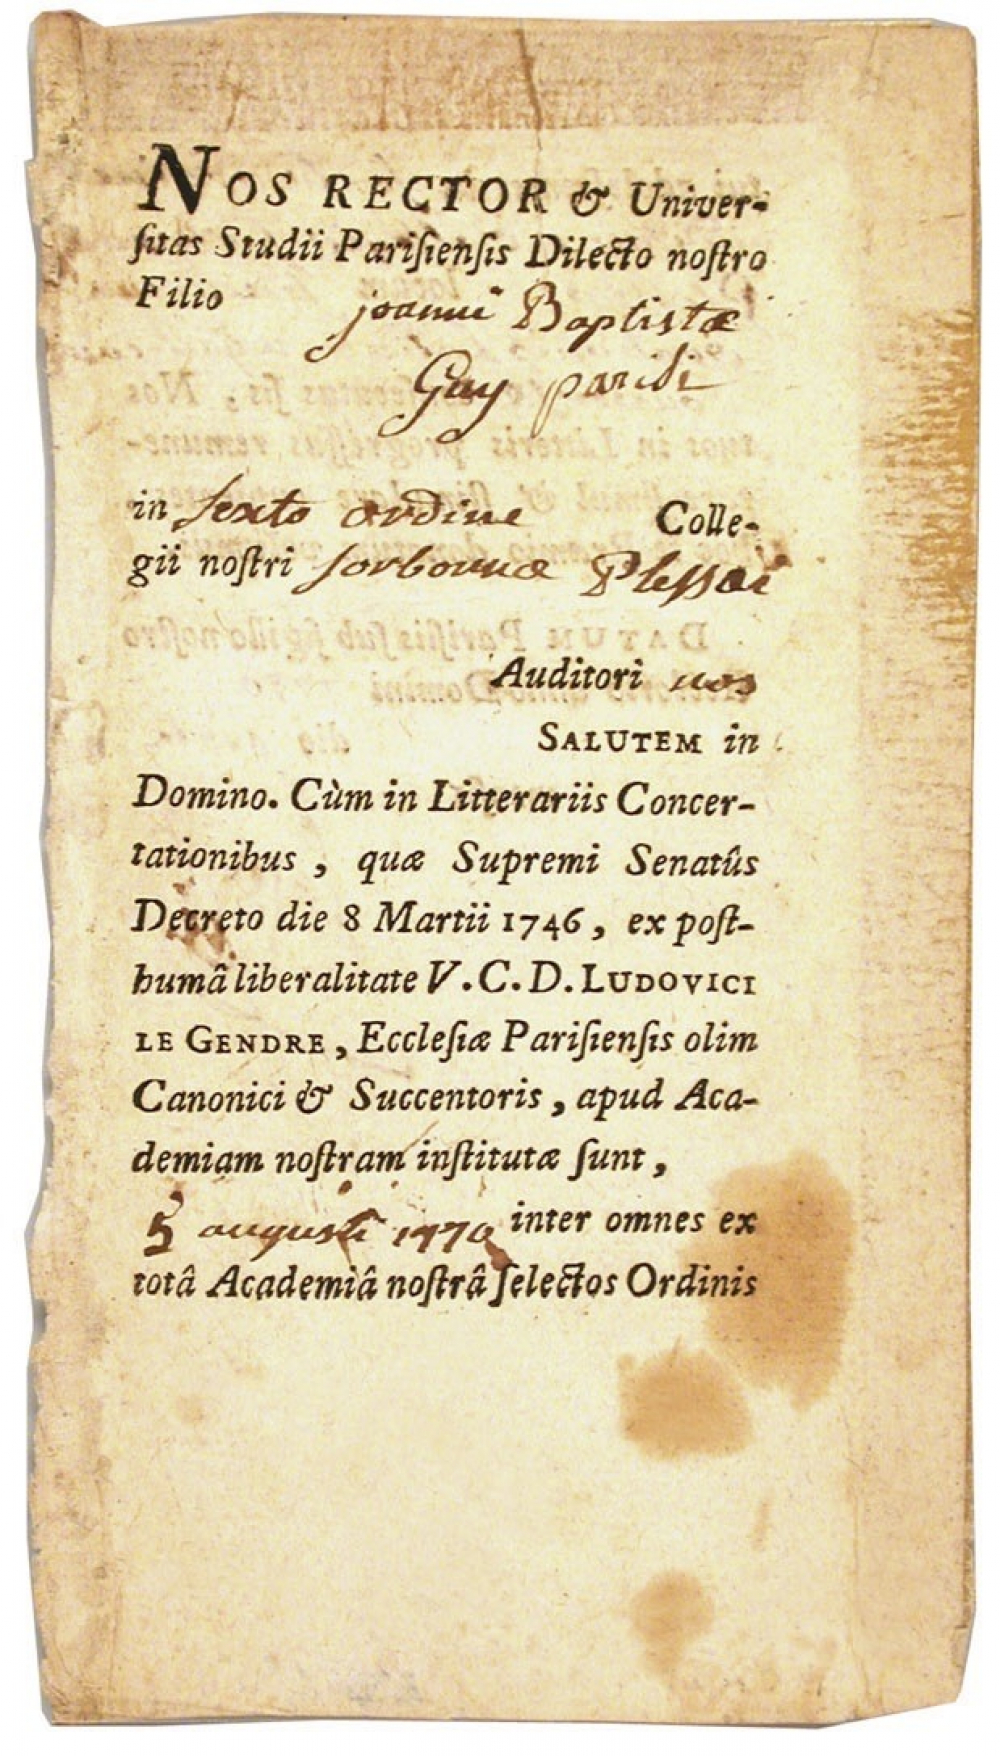 NOS RECTOR & Univer-
ſitas Studii Pariſienſis Dilecto noſtro
Filio joanni Baptistæ
Gay parisi
in sexto ordine Colle-
gii noſtri sorbonnæ Plessæi
Auditori nos
SALUTEM in
Domino. Cùm in Litterariis Concer-
tationibus, quæ Supremi Senatûs
Decreto die 8 Martii 1746, ex poſt-
humâ liberalitate V.C.D. LUDOVICI
LE GENDRE, Eccleſiæ Pariſienſis olim
Canonici & Succentoris, apud Aca-
demiam noſtram inſtitutæ ſunt,
5 augusti 1770 inter omnes ex
totâ Academiâ noſtrâ ſelectos Ordinis